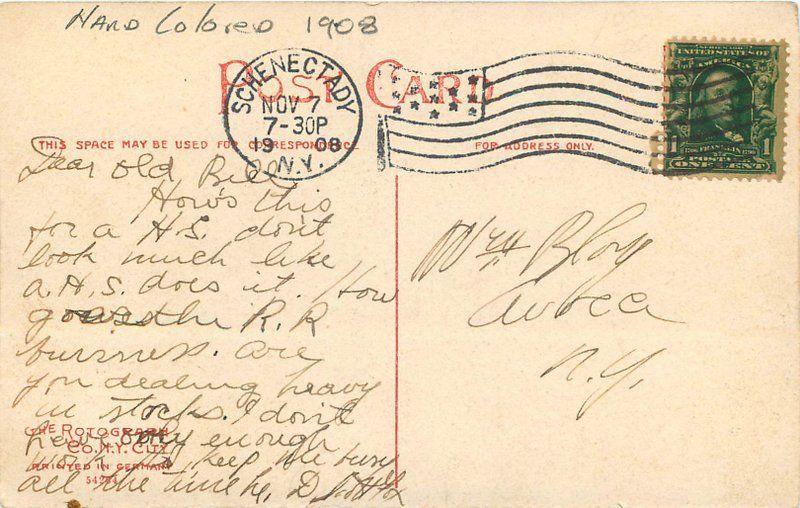 Hand Colored 1908
POST CARD
SCHENECTADY
NOV 7
7-30P
1908
N.Y.
SERIES 1902
UNITED STATES OF
AMERICA
1 FRANKLIN 1
POSTAGE
ONE CENT
THIS SPACE MAY BE USED FOR CORRESPONDENCE
FOR ADDRESS ONLY.
Dear Old Bill
How's this
for a H.S. don't
look much like
a H.S. does it. How
goes the R.R
business. are
you dealing heavy
in stocks. I don't
have only enough
work to keep me busy
all the time
Wm Bloy
Avoca
N.Y.
THE ROTOGRAPH
CO. N.Y. CITY
PRINTED IN GERMANY